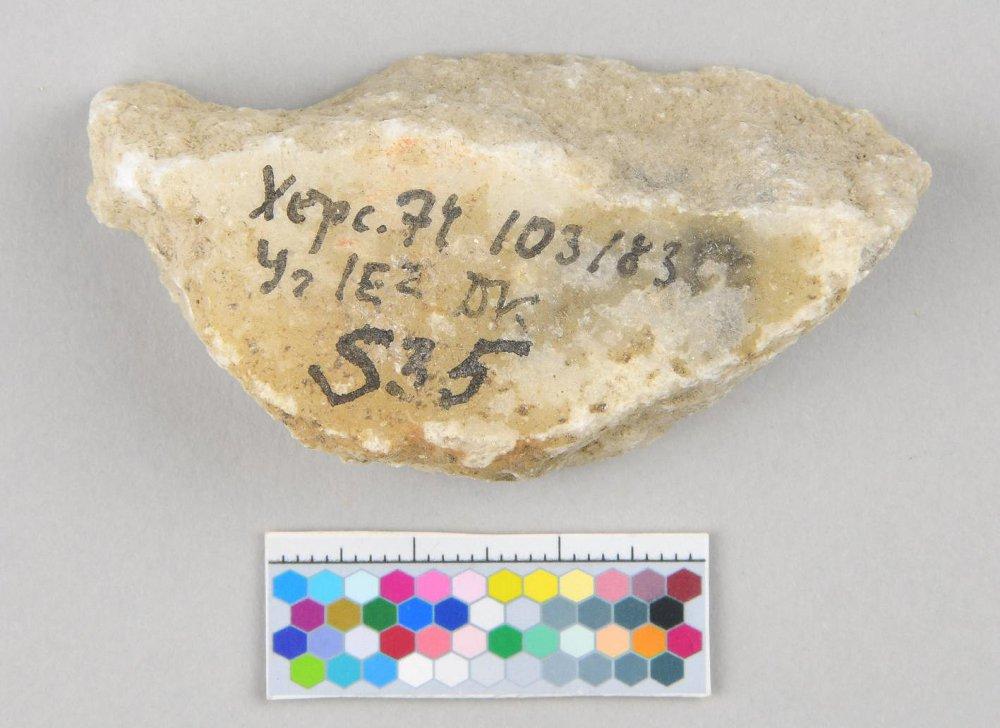 Херс. 74 103/83
Уг 1E2 DV.
S.35